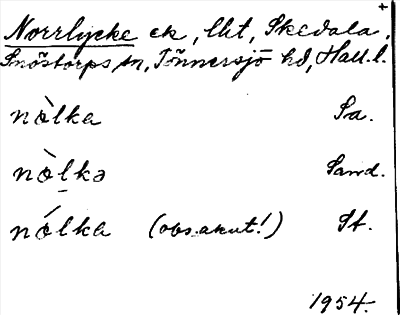 Norrlycke ek, lht, Skedala,
Snöstorps sn, Tönnersjö hd, Hall. l.
nò̤lka Sa.
nò̤lkə Sand.
nó̤lka (obs. akut!) St.
1954.